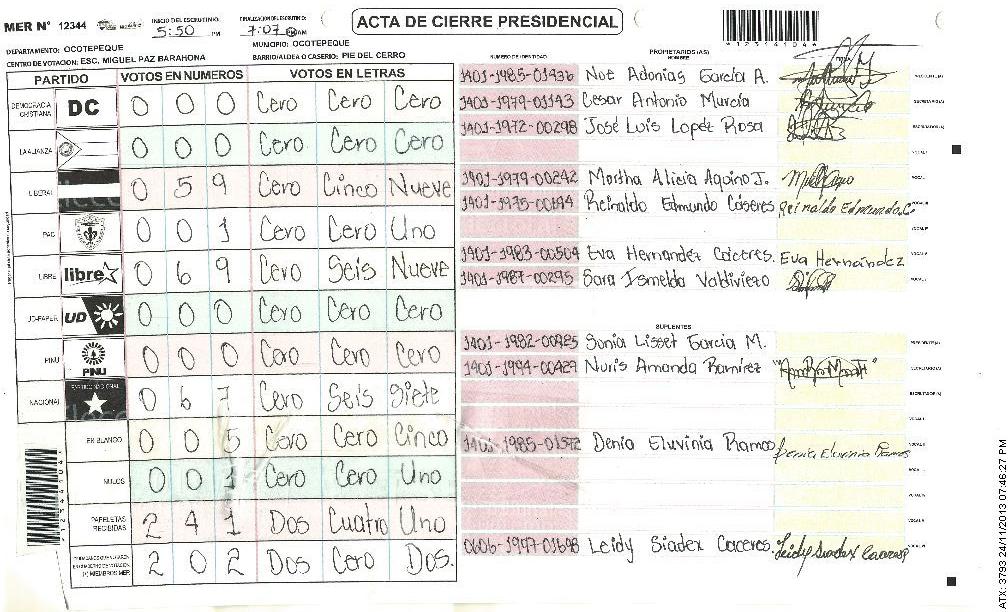 MER N° 12344
INICIO DEL ESCRUTINIO:
5:50 PM
FINALIZACION DEL ESCRUTINIO:
7:07 PM
ACTA DE CIERRE PRESIDENCIAL
DEPARTAMENTO: OCOTEPEQUE
MUNICIPIO: OCOTEPEQUE
CENTRO DE VOTACION: ESC. MIGUEL PAZ BARAHONA
BARRIO/ALDEA O CASERIO: PIE DEL CERRO
PARTIDO VOTOS EN NUMEROS VOTOS EN LETRAS
DEMOCRACIA CRISTIANA DC 0 0 0 Cero Cero Cero
LA ALIANZA 0 0 0 Cero Cero Cero
LIBERAL 0 5 9 Cero Cinco Nueve
PAC 0 0 1 Cero Cero Uno
LIBRE libre 0 6 9 Cero Seis Nueve
UD-FAPER UD 0 0 0 Cero Cero Cero
PINU PINU 0 0 0 Cero Cero Cero
NACIONAL PARTIDO NACIONAL 0 6 7 Cero Seis Siete
EN BLANCO 0 0 5 Cero Cero Cinco
NULOS 0 0 1 Cero Cero Uno
PAPELETAS RECIBIDAS 2 4 1 Dos Cuatro Uno
2 0 2 Dos Cero Dos.
NUMERO DE IDENTIDAD
PROPIETARIOS (AS)
NOMBRE
1401-1985-01436 Noe Adonias García A. PRESIDENTE(A)
1401-1979-01143 Cesar Antonio Murcia SECRETARIO(A)
1401-1972-00298 José Luis Lopéz Rosa ESCRUTADOR(A)
VOCAL I
1401-1979-00242 Martha Alicia Aquino J. VOCAL II
Reinaldo Edmundo Cáseres Reinaldo Edmundo.C. VOCAL III
VOCAL IV
1401-1983-00504 Eva Hernandez Caceres. Eva Hernández VOCAL V
1401-1987-00295 Sara Ismelda Valdiviezo
SUPLENTES
1401-1982-00425 Sonia Lisset Garcia M. PRESIDENTE(A)
1401-1994-00429 Nuris Amanda Ramirez SECRETARIO(A)
ESCRUTADOR(A)
VOCAL I
Denia Eluvinia Ramos Denia Eluvinia Ramos VOCAL II
VOCAL III
VOCAL IV
VOCAL V
Leidy Siadex Caceres. Leidy Siadex Caceres
ATX: 3793 24/11/2013 07:46:27 PM